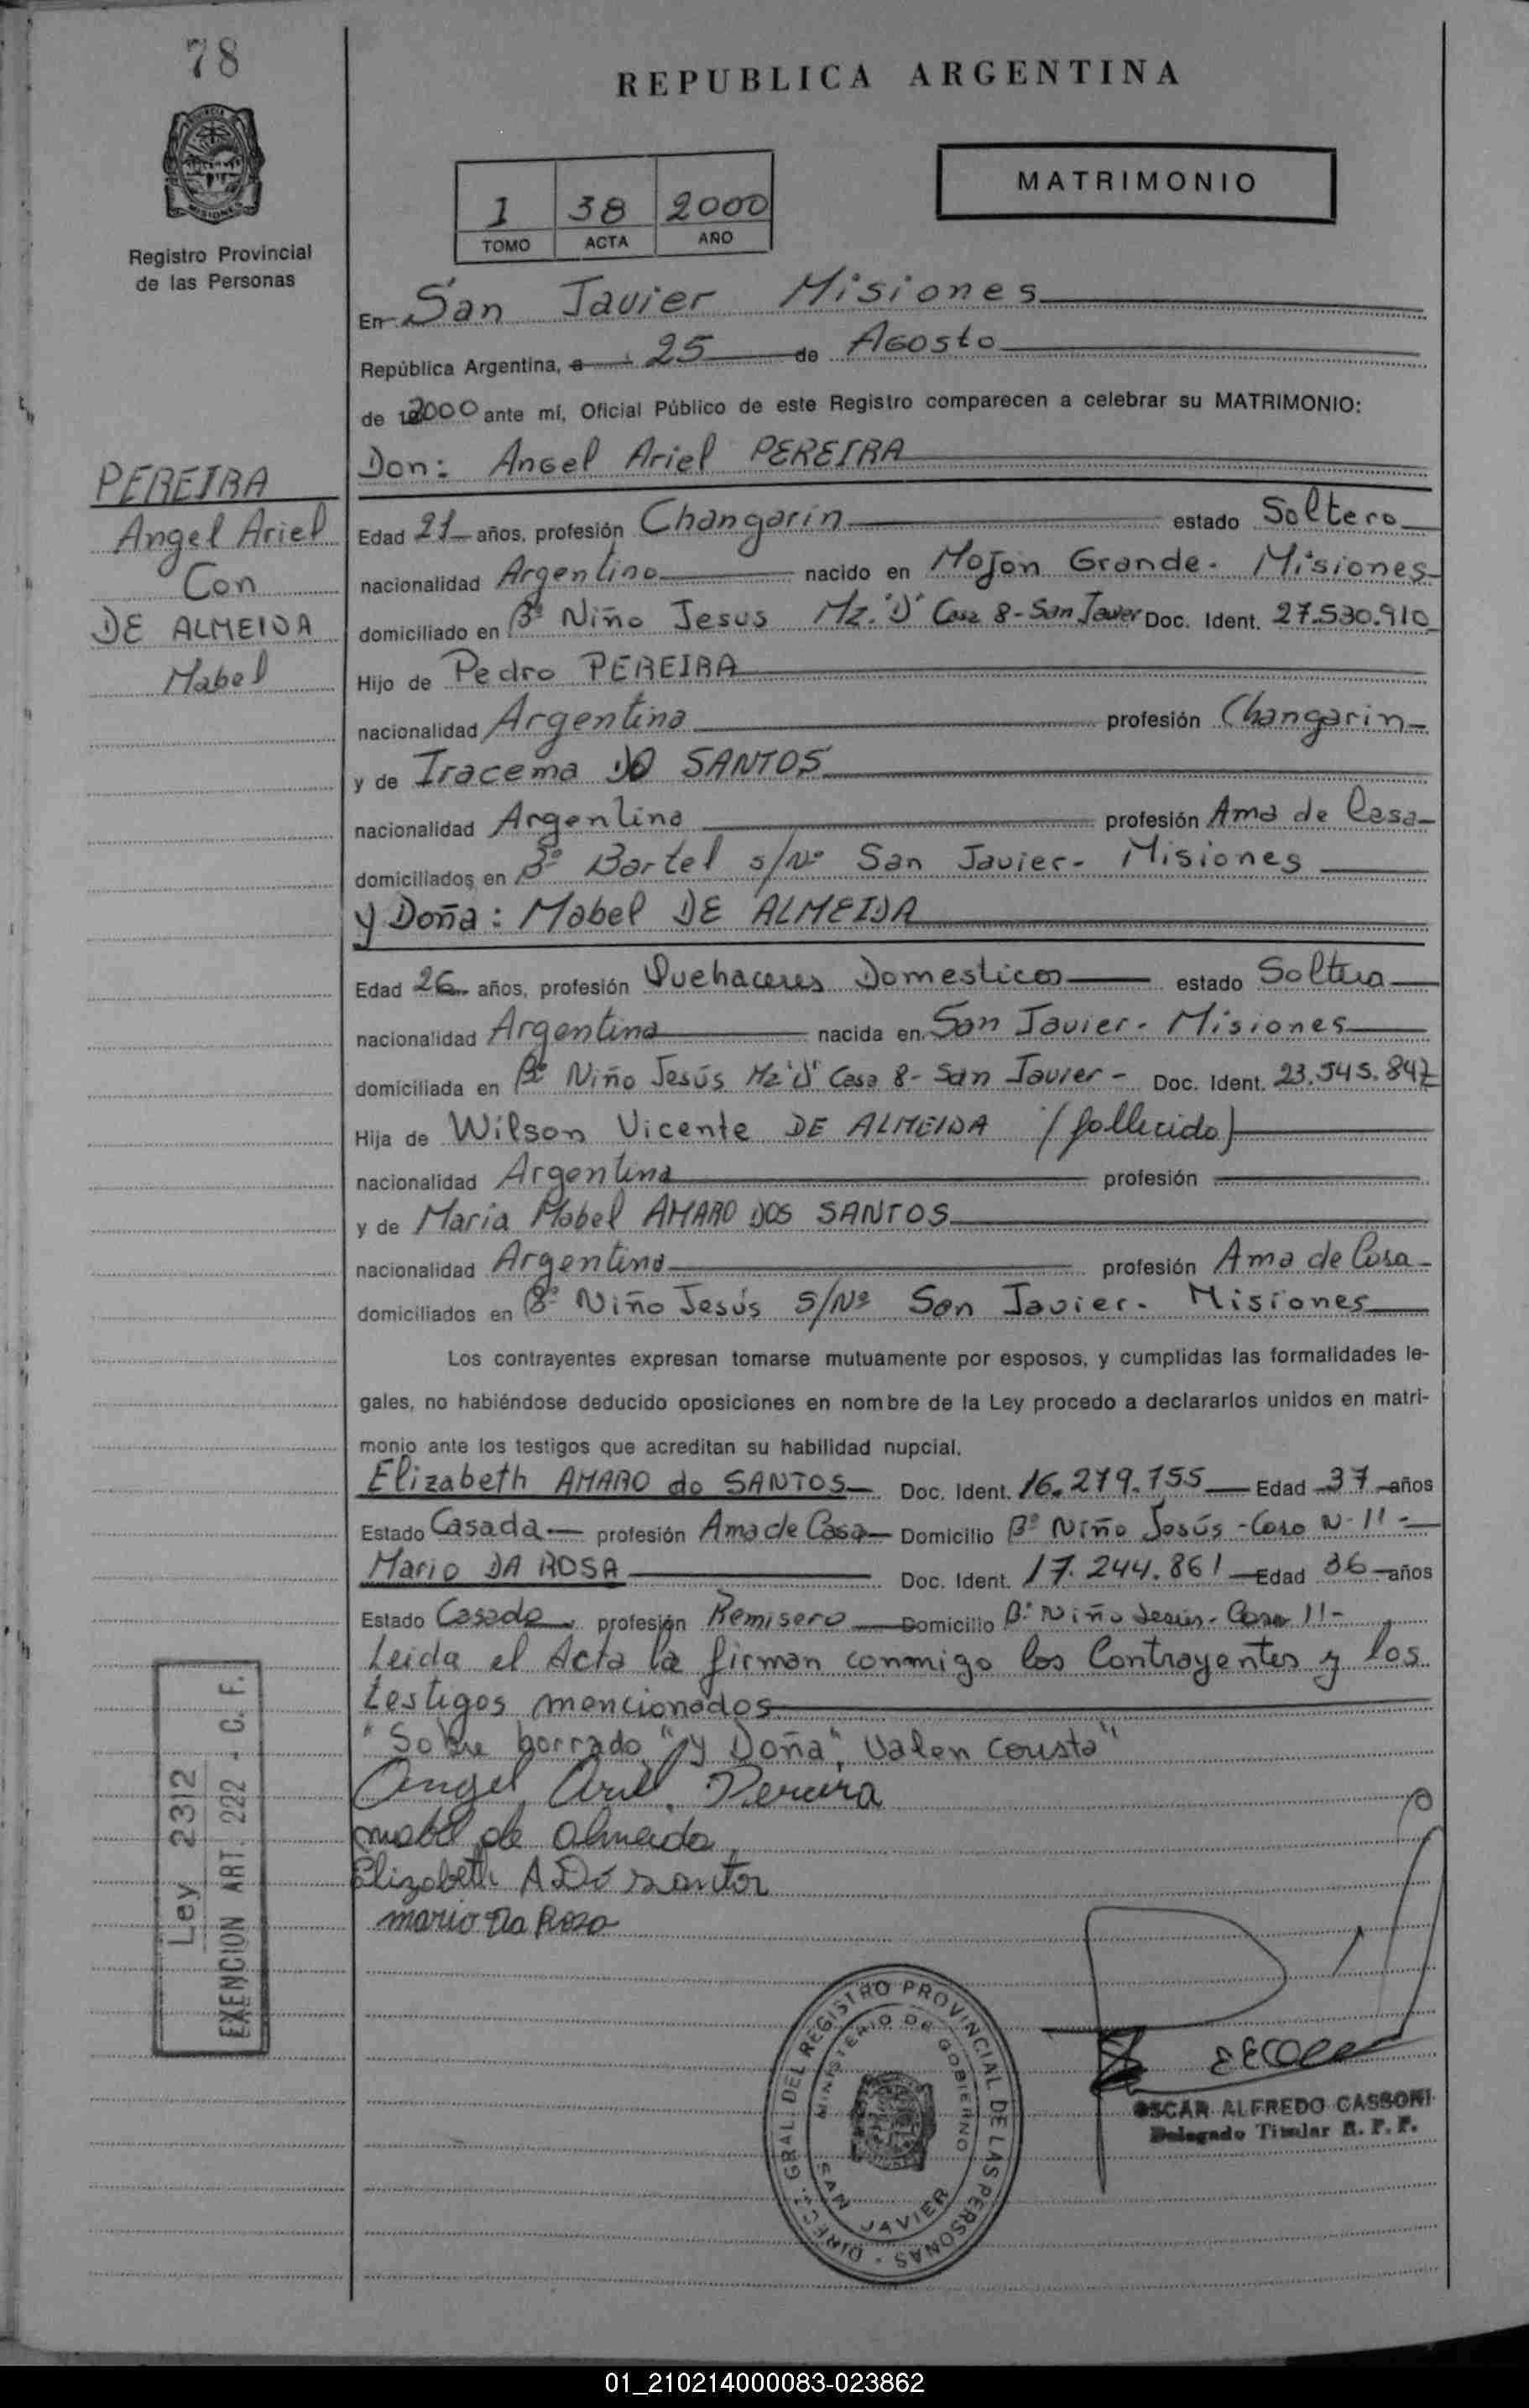 78
REPUBLICA ARGENTINA
MATRIMONIO
1 38 2000
TOMO ACTA AÑO
Registro Provincial
de las Personas
En San Javier Misiones
República Argentina, a 25 de Agosto
de 2000 ante mí, Oficial Público de este Registro comparecen a celebrar su MATRIMONIO:
Don: Angel Ariel PEREIRA
PEREIRA
Angel Ariel
Con
DE ALMEIDA
Mabel
Edad 21 años, profesión Changarin estado Soltero
nacionalidad Argentino nacido en Mojon Grande - Misiones
domiciliado en Bº Niño Jesus Mz. "D" Casa 8 - San Javier Doc. Ident. 27.530.910
Hijo de Pedro PEREIRA
nacionalidad Argentina profesión Changarin
y de Iracema DO SANTOS
nacionalidad Argentina profesión Ama de Casa
domiciliados en Bº Bartel s/Nº San Javier - Misiones
y Doña: Mabel DE ALMEIDA
Edad 26 años, profesión Quehaceres Domesticos estado Soltera
nacionalidad Argentina nacida en San Javier - Misiones
domiciliada en Bº Niño Jesús Mz "D" Casa 8 - San Javier - Doc. Ident. 23.545.847
Hija de Wilson Vicente DE ALMEIDA (fallecido)
nacionalidad Argentina profesión
y de Maria Mabel AMARO DOS SANTOS
nacionalidad Argentina profesión Ama de Casa
domiciliados en Bº Niño Jesús S/Nº San Javier - Misiones
Los contrayentes expresan tomarse mutuamente por esposos, y cumplidas las formalidades le-
gales, no habiéndose deducido oposiciones en nombre de la Ley procedo a declararlos unidos en matri-
monio ante los testigos que acreditan su habilidad nupcial.
Elizabeth AMARO do SANTOS Doc. Ident. 16.279.755 Edad 37 años
Estado Casada profesión Ama de Casa Domicilio Bº Niño Jesús - Casa N- 11 -
Mario DA ROSA Doc. Ident. 17.244.861 Edad 36 años
Estado Casado profesión Remisero Domicilio Bº Niño Jesús - Casa 11 -
Leida el Acta la firman conmigo los Contrayentes y los
testigos mencionados
"Sobre borrado "y Doña", Valen
Angel Ariel Pereira
mabel de almeida
Elizabeth A Do santos
mario Da Rosa
Ley 2312
EXENCION ART. 222 - C. F.
DIRECC. GRAL. DEL REGISTRO PROVINCIAL DE LAS PERSONAS
MINISTERIO DE GOBIERNO
SAN JAVIER
OSCAR ALFREDO CASSONI
Delegado Titular R. P. P.
01_210214000083-023862